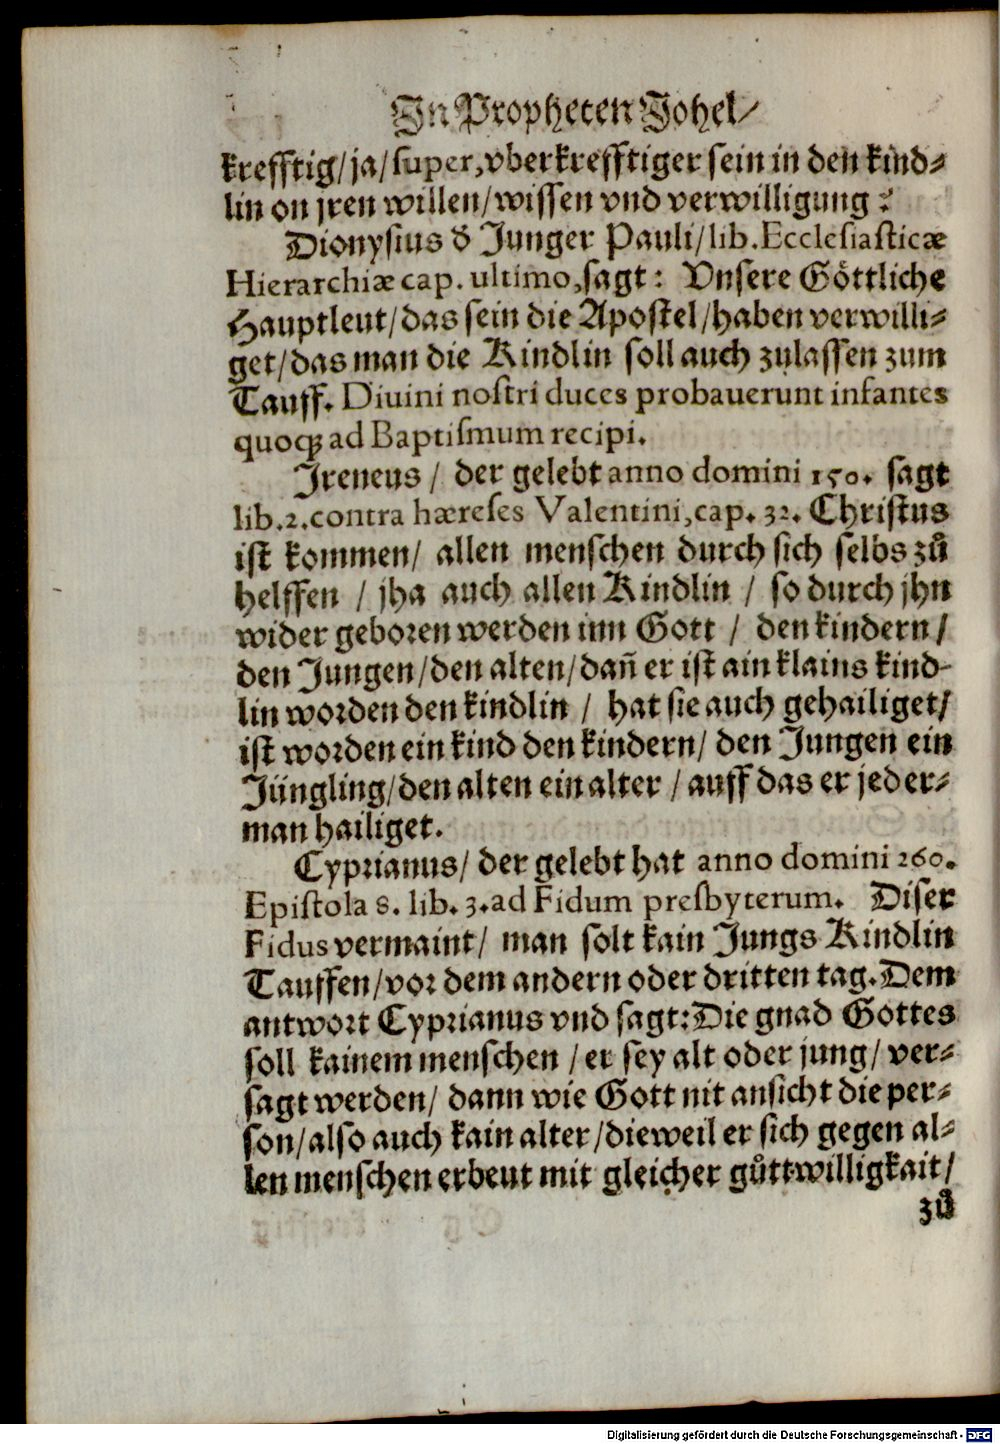 In Propheten Johel/
krefftig/ja/super, vberkrefftiger sein in den kind-
lin on jren willen/wissen vnd verwilligung?
Dionysius đ Junger Pauli/lib. Ecclesiasticæ
Hierarchiæ cap. ultimo, sagt: Vnsere Göttliche
Hauptleut/das sein die Apostel/haben verwilli-
get/das man die Kindlin soll auch zulassen zum
Tauff. Diuini nostri duces probauerunt infantes
quoqꝫ ad Baptismum recipi.
Ireneus / der gelebt anno domini 150. sagt
lib. 2. contra hæreses Valentini, cap. 32. Christus
ist kommen/ allen menschen durch sich selbs zů
helffen / jha auch allen Kindlin / so durch jhn
wider geboren werden inn Gott / den kindern/
den Jungen/den alten/dañ er ist ain klains kind-
lin worden den kindlin / hat sie auch gehailiget/
ist worden ein kind den kindern/ den Jungen ein
Jüngling/den alten ein alter / auff das er jeder-
man hailiget.
Cyprianus/ der gelebt hat anno domini 260.
Epistola 8. lib. 3. ad Fidum presbyterum. Diser
Fidus vermaint/ man solt kain Jungs Kindlin
Tauffen/vor dem andern oder dritten tag. Dem
antwort Cyprianus vnd sagt: Die gnad Gottes
soll kainem menschen / er sey alt oder jung/ ver-
sagt werden/ dann wie Gott nit ansicht die per-
son/also auch kain alter/dieweil er sich gegen al-
len menschen erbeut mit gleicher gůttwilligkait/
zů
Digitalisierung gefördert durch die Deutsche Forschungsgemeinschaft - DFG